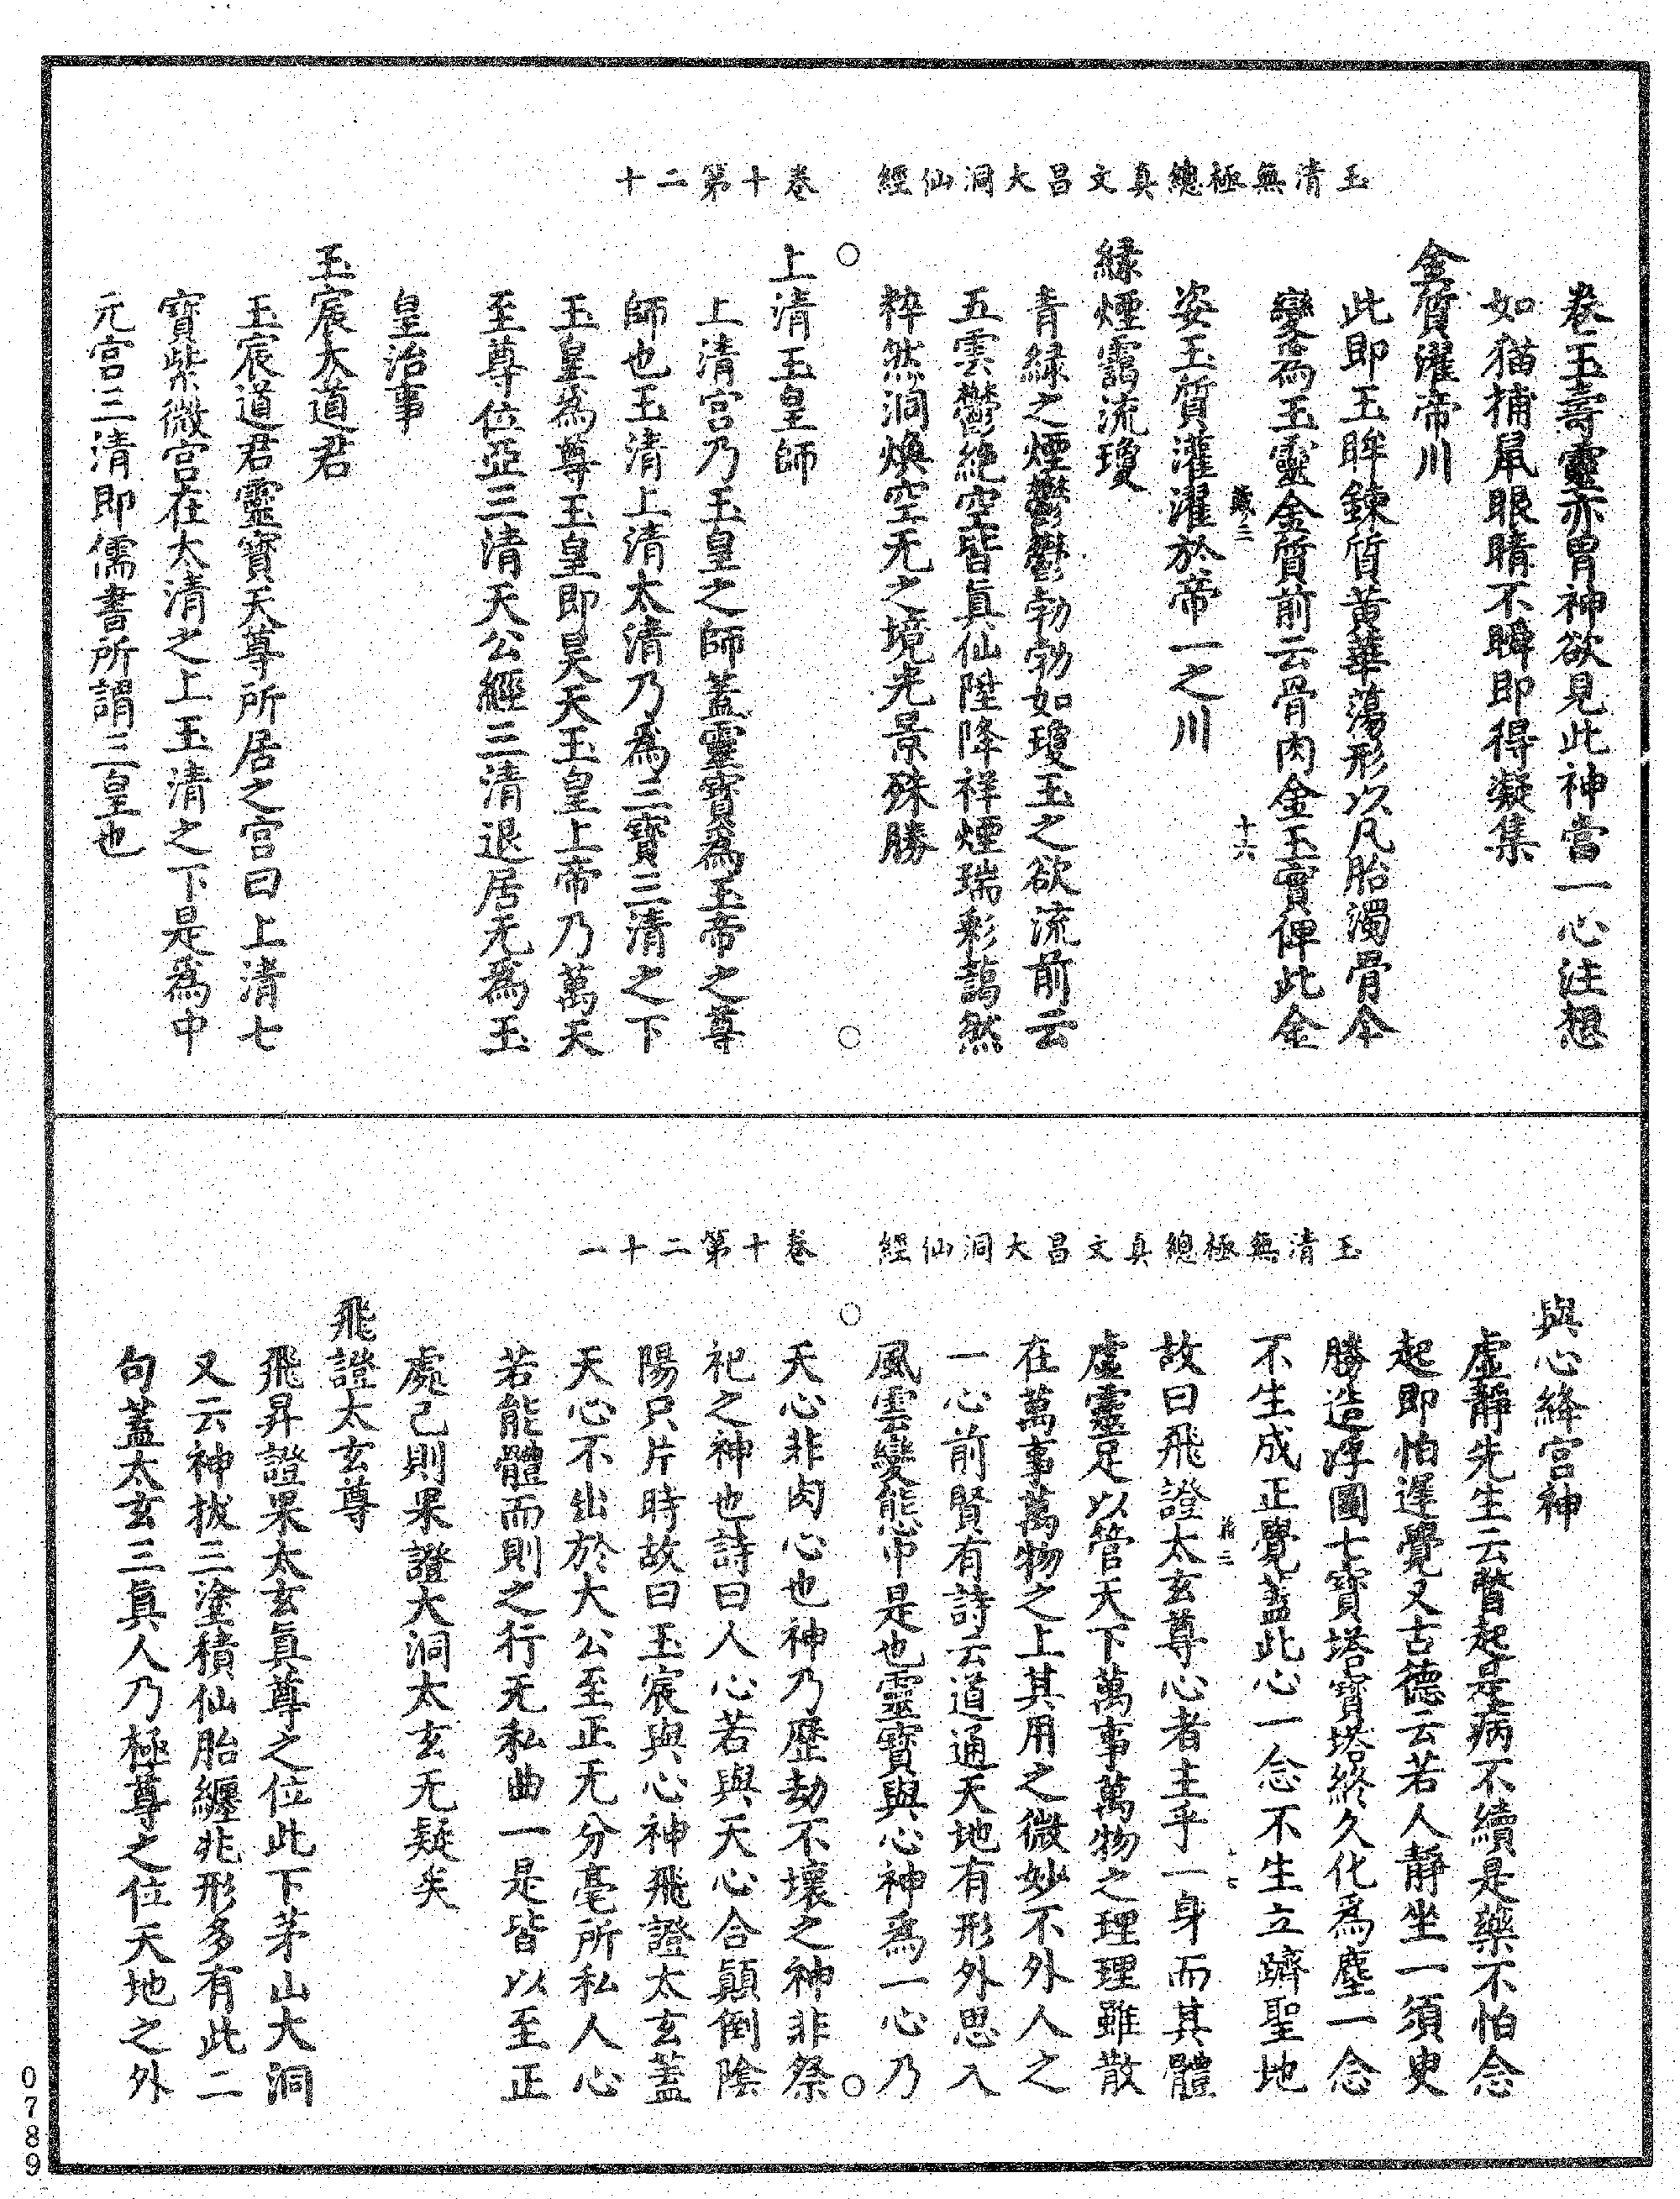 玉清無極總真文昌大洞仙經　卷十第二十
卷玉壽靈赤胃神欲見此神當一心注想
如猫捕鼠眼睛不瞬即得凝集
金質濯帝川
此即玉眸鍊質黃華蕩形以凡胎濁骨今
變為玉靈金質前云骨肉金玉實俾此金
十六
姿玉質灌濯於帝一之川
緑煙靄流瓊
青緑之煙鬱鬱勃勃如瓊玉之欲流前云
五雲鬱絶空皆真仙陞降祥煙瑞彩藹然
粹然洞煥空无之境光景殊勝
上清玉皇師
上清宫乃玉皇之師蓋靈寶為玉帝之尊
師也玉清上清太清乃為三寶三清之下
玉皇為尊玉皇即昊天玉皇上帝乃萬天
至尊位亞三清天公經三清退居无為玉
皇治事
玉宸大道君
玉宸道君靈寶天尊所居之宫曰上清七
寶紫微宫在太清之上玉清之下是為中
元宫三清即儒書所謂三皇也
玉清無極總真文昌大洞仙經　卷十第二十一
與心絳宫神
虚靜先生云瞥起是病不續是藥不怕念
起即怕遲覺又古德云若人靜坐一須臾
勝造浮圖七寶塔寶塔終久化為塵一念
不生成正覺蓋此心一念不生立躋聖地
故曰飛證太玄尊心者主乎一身而其體
虚靈足以管天下萬事萬物之理理雖散
在萬事萬物之上其用之微妙不外人之
一心前賢有詩云道通天地有形外思入
風雲變態中是也靈寶與心神為一心乃
天心非肉心也神乃歷劫不壞之神非祭
祀之神也詩曰人心若與天心合顛倒陰
陽只片時故曰玉宸與心神飛證太玄蓋
天心不出於大公至正无分毫所私人心
若能體而則之行无私曲一是皆以至正
處己則果證大洞太玄无疑矣
飛證太玄尊
飛昇證果太玄真尊之位此下茅山大洞
又云神拔三塗積仙胎纏兆形多有此二
句蓋太玄三真人乃極尊之位天地之外
0789